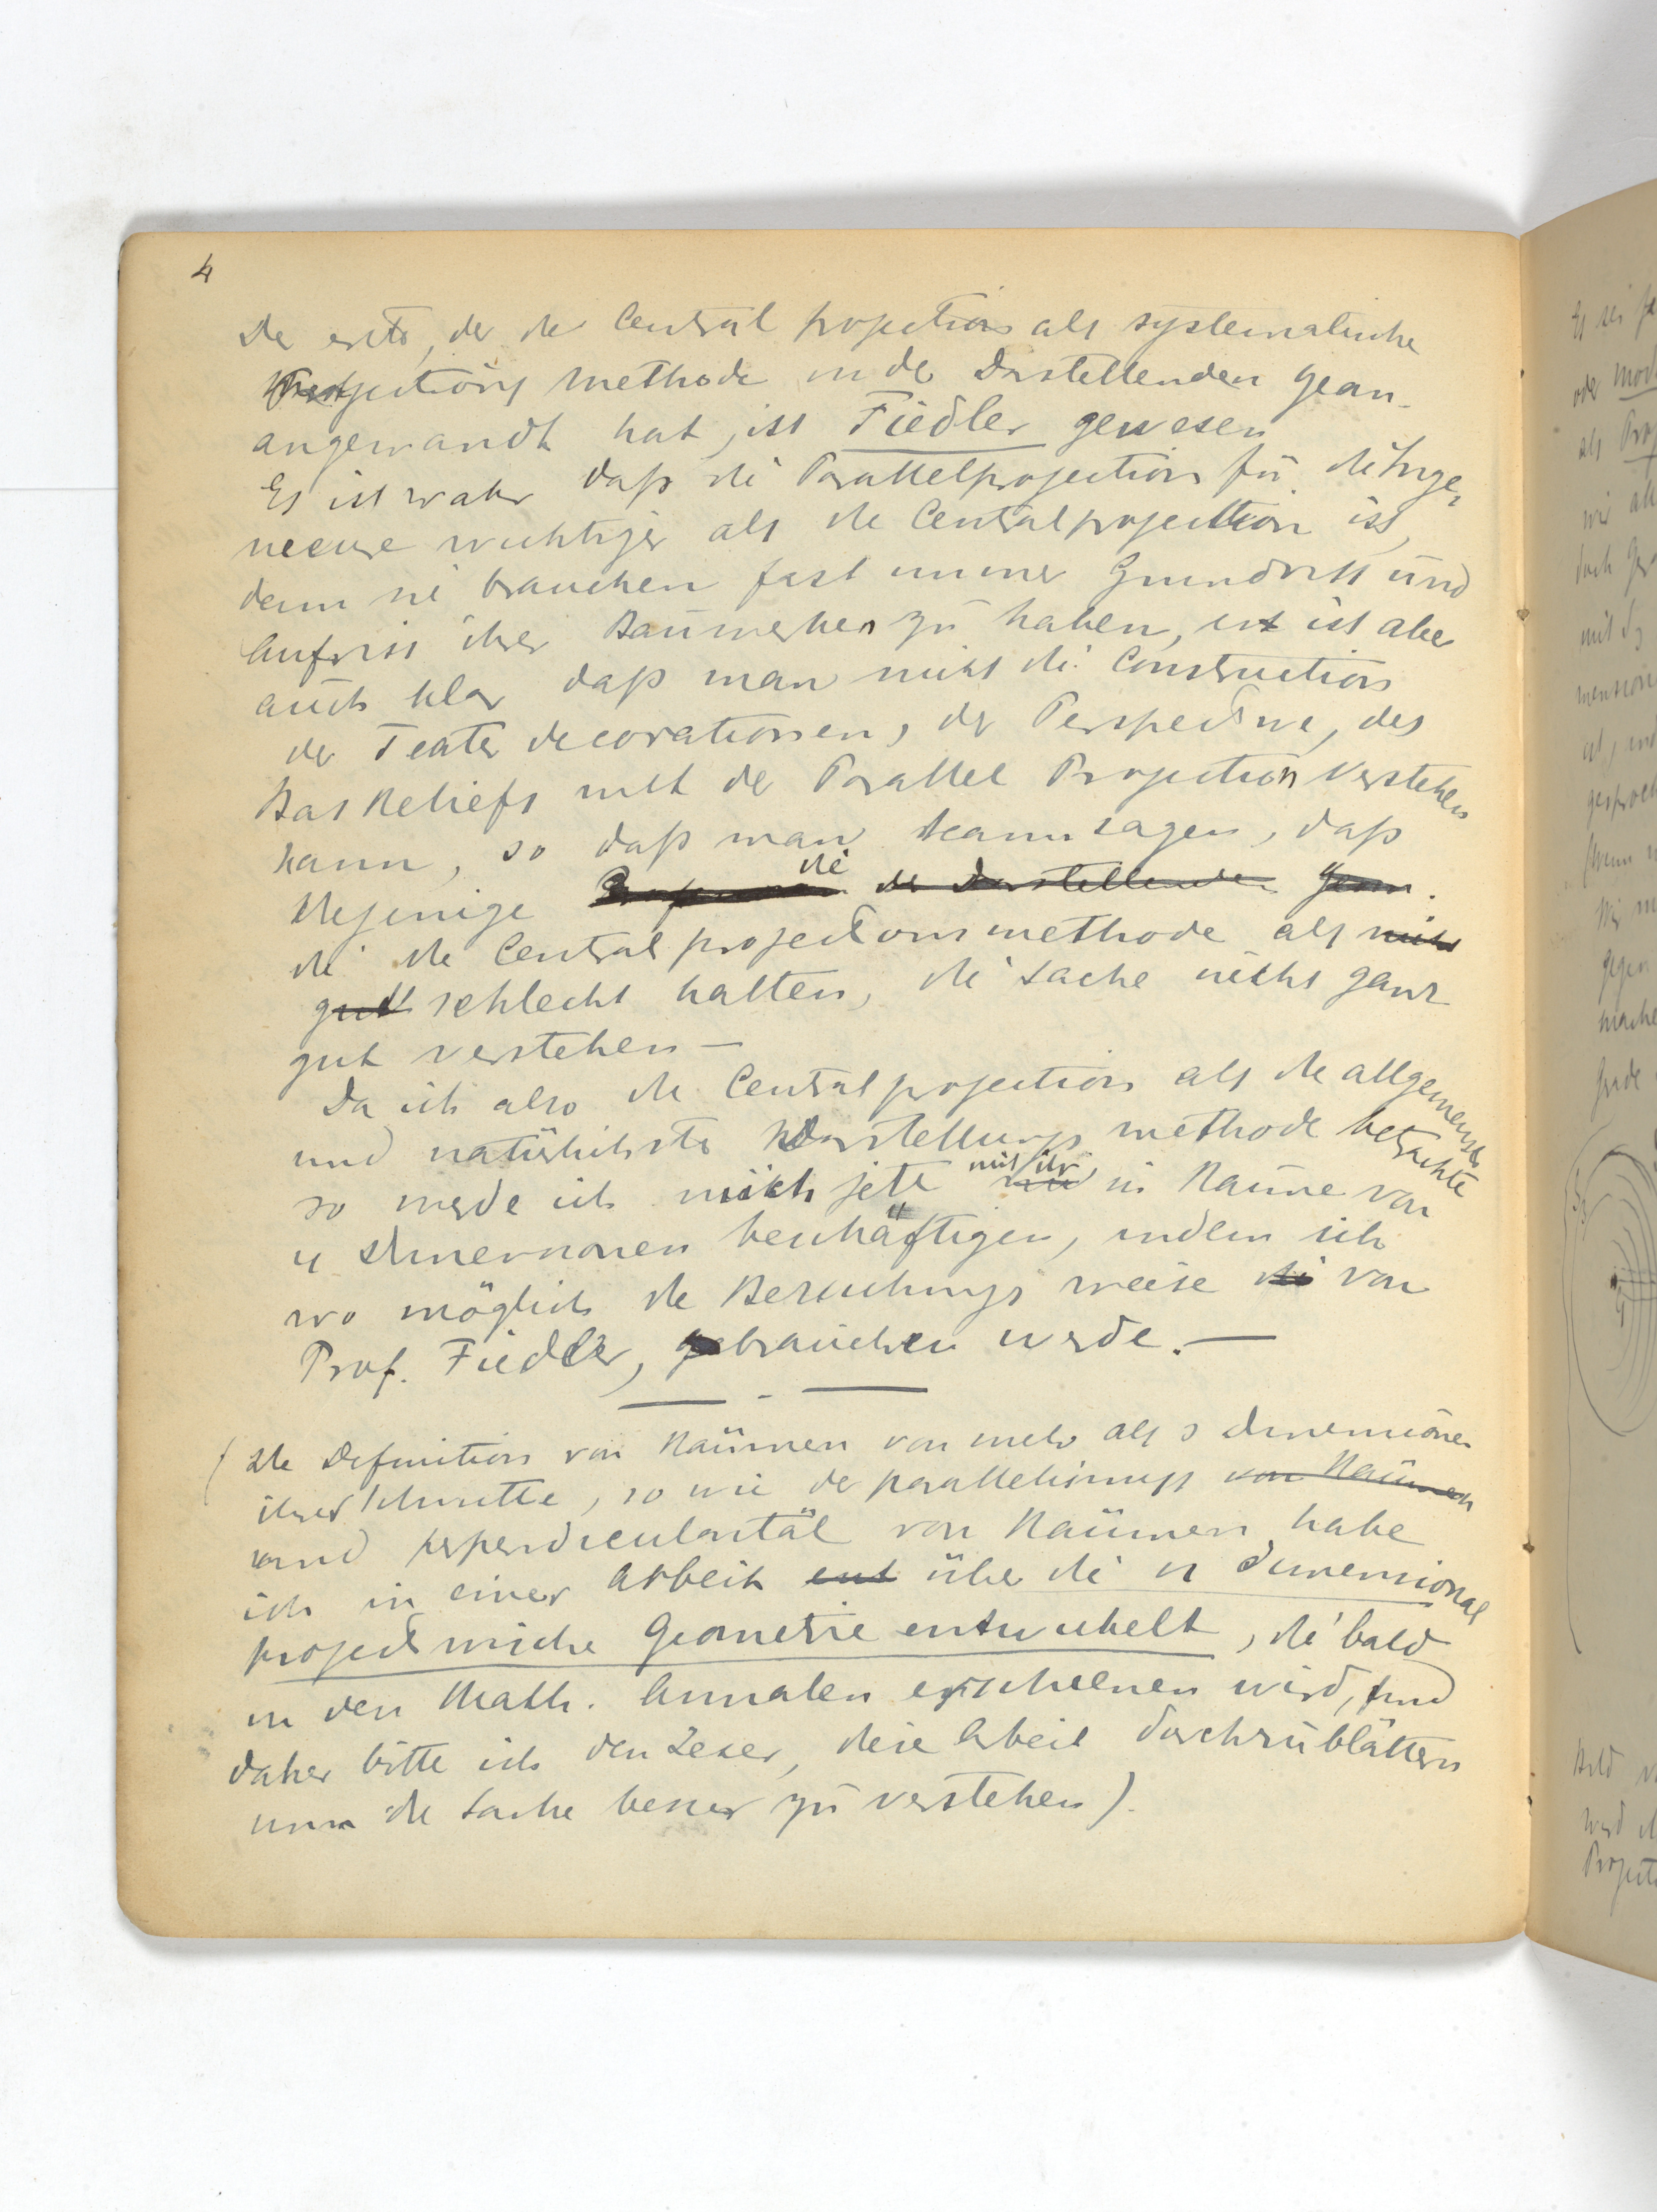 4
Der erste, der die Central projection als systematische
Projections methode in der Darstellenden gean-
angewandt hat, ist Fiedler gewesen
Es ist wahr daß die Parallelprojection für die Inge-
neeure wichtiger als die Centralprojection ist,
denn sie brauchen fast immer Grundriss und
Aufriss ihrer Bauwerken zu haben, es ist aber
auch klar daß man nicht die Construction
der Teater decorationen, der Perspective, des
Bas Reliefs mit der Parallel Projection verstehen
kann, so daß man kann sagen, daß
diejenige die der Darstellenden Geom.
die die Central projectionsmethode als nicht
gut schlecht halten, die Sache nicht ganz
gut verstehen —
Da ich also die Centralprojection als die allgemeinste
und natürlichste Darstellungs methode betrachte
so werde ich mich jetz mit ihr in Räume von
n Dimensionen beschäftigen, indem ich
wo möglich die Bezeichnungs weise die von
Prof. Fiedler, gebrauchen werde. —
— - —
(Die Definition von Räumen von mehr als 3 Dimensionen
ihrer Schnitte, so wie der parallelismus von Räumen
und perpendicularität von Räumen habe
ich in einer Arbeit ent über die n dimensional
projectivische Geometrie entwickelt, die bald
in den Math. Annalen erscheenen wird, und
daher bitte ich den Leser, diese Arbeit durchzublättern
um die Sache besser zu verstehen).
Es sei
oder
als
wir
doch
mit
gegen
Grade
Bild
wird